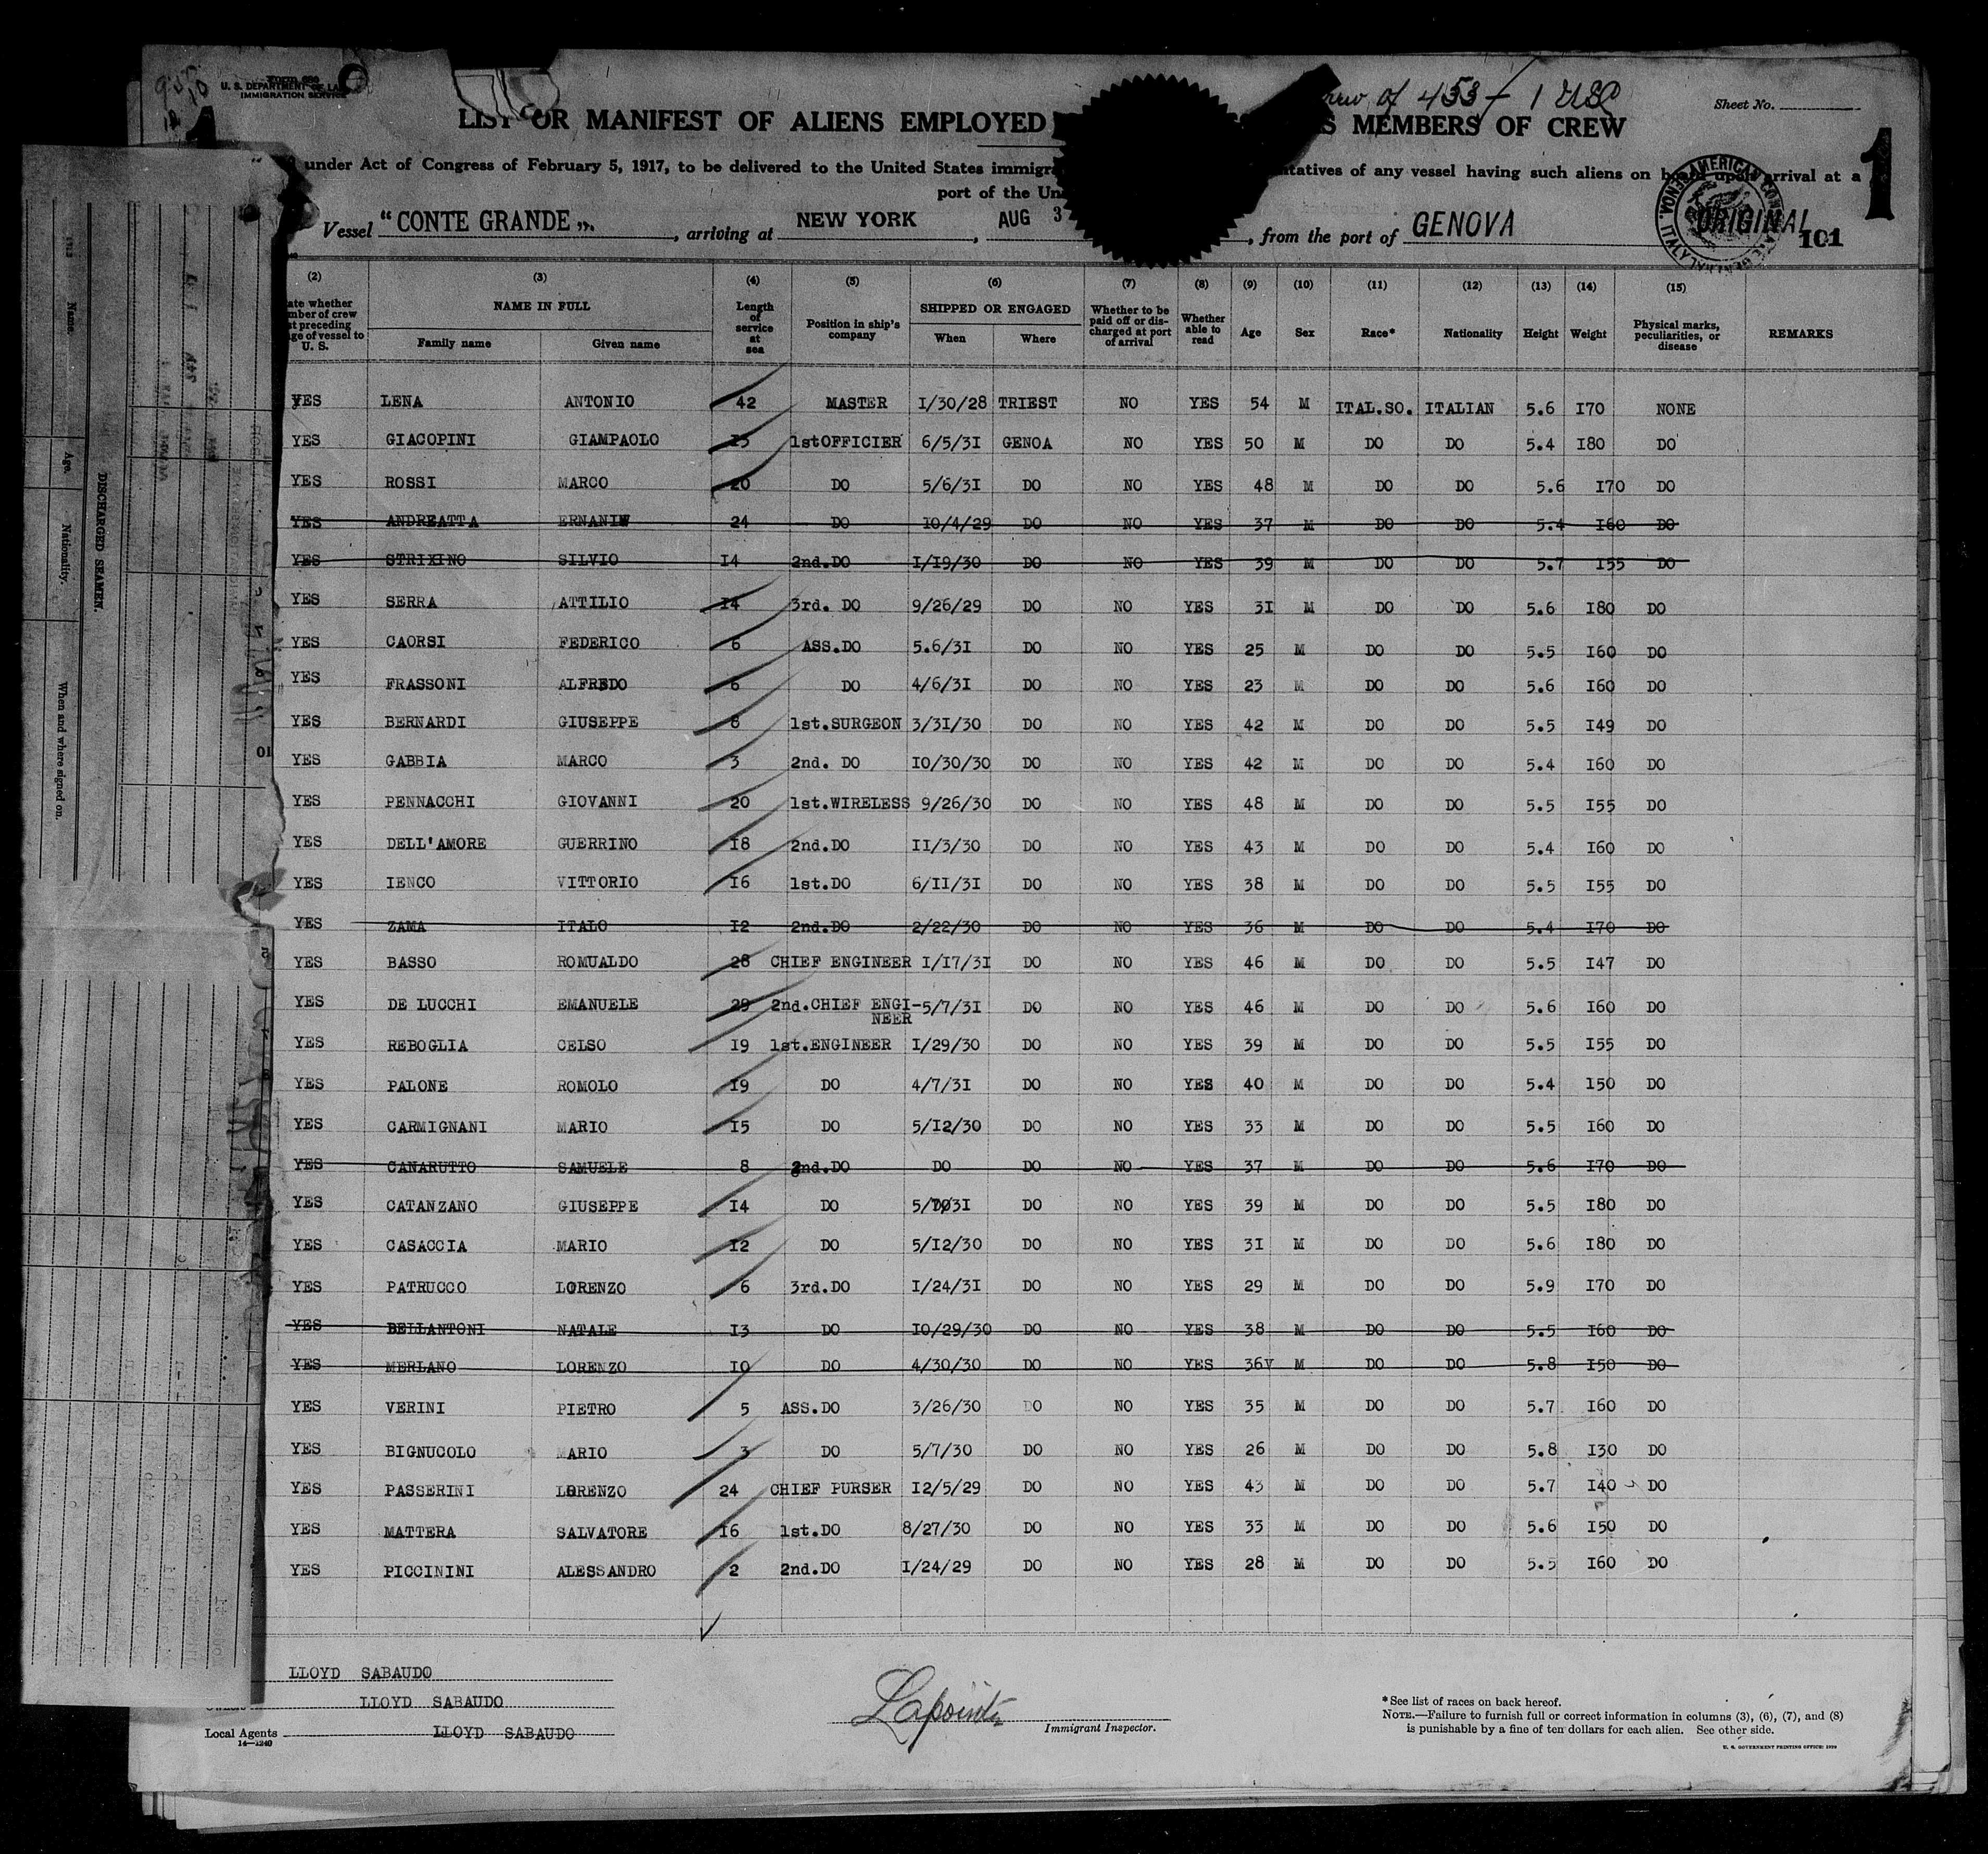 Form 680
U. S. DEPARTMENT OF LA
IMMIGRATION SERVICE
crew of 453 - 1 USC
Sheet No.
LIST OR MANIFEST OF ALIENS EMPLOYED S MEMBERS OF CREW
1
under Act of Congress of February 5, 1917, to be delivered to the United States immigra tatives of any vessel having such aliens on board upon arrival at a
port of the Un
Vessel "CONTE GRANDE", arriving at NEW YORK, AUG 3, from the port of GENOVA
ORIGINAL 101
(2) (3) (4) (5) (6) (7) (8) (9) (10) (11) (12) (13) (14) (15)
ate whether mber of crew st preceding ge of vessel to U. S. NAME IN FULL Family name Given name Length of service at sea Position in ship's company SHIPPED OR ENGAGED When Where Whether to be paid off or discharged at port of arrival Whether able to read Age Sex Race* Nationality Height Weight Physical marks, peculiarities, or disease REMARKS
YES LENA ANTONIO 42 MASTER I/30/28 TRIEST NO YES 54 M ITAL.SO. ITALIAN 5.6 I70 NONE
YES GIACOPINI GIAMPAOLO I3 1stOFFICIER 6/5/3I GENOA NO YES 50 M DO DO 5.4 I80 DO
YES ROSSI MARCO 20 DO 5/6/3I DO NO YES 48 M DO DO 5.6 I70 DO
YES ANDREATTA ERNANI 24 DO I0/4/29 DO NO YES 37 M DO DO 5.4 I60 DO
YES STRIXINO SILVIO I4 2nd.DO I/I9/30 DO NO YES 39 M DO DO 5.7 I55 DO
YES SERRA ATTILIO I4 3rd. DO 9/26/29 DO NO YES 3I M DO DO 5.6 I80 DO
YES CAORSI FEDERICO 6 ASS.DO 5.6/3I DO NO YES 25 M DO DO 5.5 I60 DO
YES FRASSONI ALFREDO 6 DO 4/6/3I DO NO YES 23 M DO DO 5.6 I60 DO
YES BERNARDI GIUSEPPE 8 1st.SURGEON 3/3I/30 DO NO YES 42 M DO DO 5.5 I49 DO
YES GABBIA MARCO 3 2nd. DO I0/30/30 DO NO YES 42 M DO DO 5.4 I60 DO
YES PENNACCHI GIOVANNI 20 1st.WIRELESS 9/26/30 DO NO YES 48 M DO DO 5.5 I55 DO
YES DELL'AMORE GUERRINO I8 2nd.DO II/3/30 DO NO YES 43 M DO DO 5.4 I60 DO
YES IENCO VITTORIO I6 1st.DO 6/II/3I DO NO YES 38 M DO DO 5.5 I55 DO
YES ZAMA ITALO I2 2nd.DO 2/22/30 DO NO YES 36 M DO DO 5.4 I70 DO
YES BASSO ROMUALDO 28 CHIEF ENGINEER I/I7/3I DO NO YES 46 M DO DO 5.5 I47 DO
YES DE LUCCHI EMANUELE 29 2nd.CHIEF ENGI-NEER 5/7/3I DO NO YES 46 M DO DO 5.6 I60 DO
YES REBOGLIA CELSO I9 1st.ENGINEER I/29/30 DO NO YES 39 M DO DO 5.5 I55 DO
YES PALONE ROMOLO I9 DO 4/7/3I DO NO YES 40 M DO DO 5.4 I50 DO
YES CARMIGNANI MARIO I5 DO 5/I2/30 DO NO YES 33 M DO DO 5.5 I60 DO
YES CANARUTTO SAMUELE 8 2nd.DO DO DO NO YES 37 M DO DO 5.6 I70 DO
YES CATANZANO GIUSEPPE I4 DO 5/ 3I DO NO YES 39 M DO DO 5.5 I80 DO
YES CASACCIA MARIO I2 DO 5/I2/30 DO NO YES 3I M DO DO 5.6 I80 DO
YES PATRUCCO LORENZO 6 3rd.DO I/24/3I DO NO YES 29 M DO DO 5.9 I70 DO
YES BELLANTONI NATALE I3 DO I0/29/30 DO NO YES 38 M DO DO 5.5 I60 DO
YES MERLANO LORENZO I0 DO 4/30/30 DO NO YES 36 M DO DO 5.8 I50 DO
YES VERINI PIETRO 5 ASS.DO 3/26/30 DO NO YES 35 M DO DO 5.7 I60 DO
YES BIGNUCOLO MARIO 3 DO 5/7/30 DO NO YES 26 M DO DO 5.8 I30 DO
YES PASSERINI LORENZO 24 CHIEF PURSER I2/5/29 DO NO YES 43 M DO DO 5.7 I40 DO
YES MATTERA SALVATORE I6 1st.DO 8/27/30 DO NO YES 33 M DO DO 5.6 I50 DO
YES PICCININI ALESSANDRO 2 2nd.DO I/24/29 DO NO YES 28 M DO DO 5.5 I60 DO
LLOYD SABAUDO
LLOYD SABAUDO
Local Agents LLOYD SABAUDO
14—1240
Lapointe
Immigrant Inspector.
*See list of races on back hereof.
NOTE.—Failure to furnish full or correct information in columns (3), (6), (7), and (8)
is punishable by a fine of ten dollars for each alien. See other side.
U. S. GOVERNMENT PRINTING OFFICE: 1929
DISCHARGED SEAMEN.
Name.
Age.
Nationality.
When and where signed on.